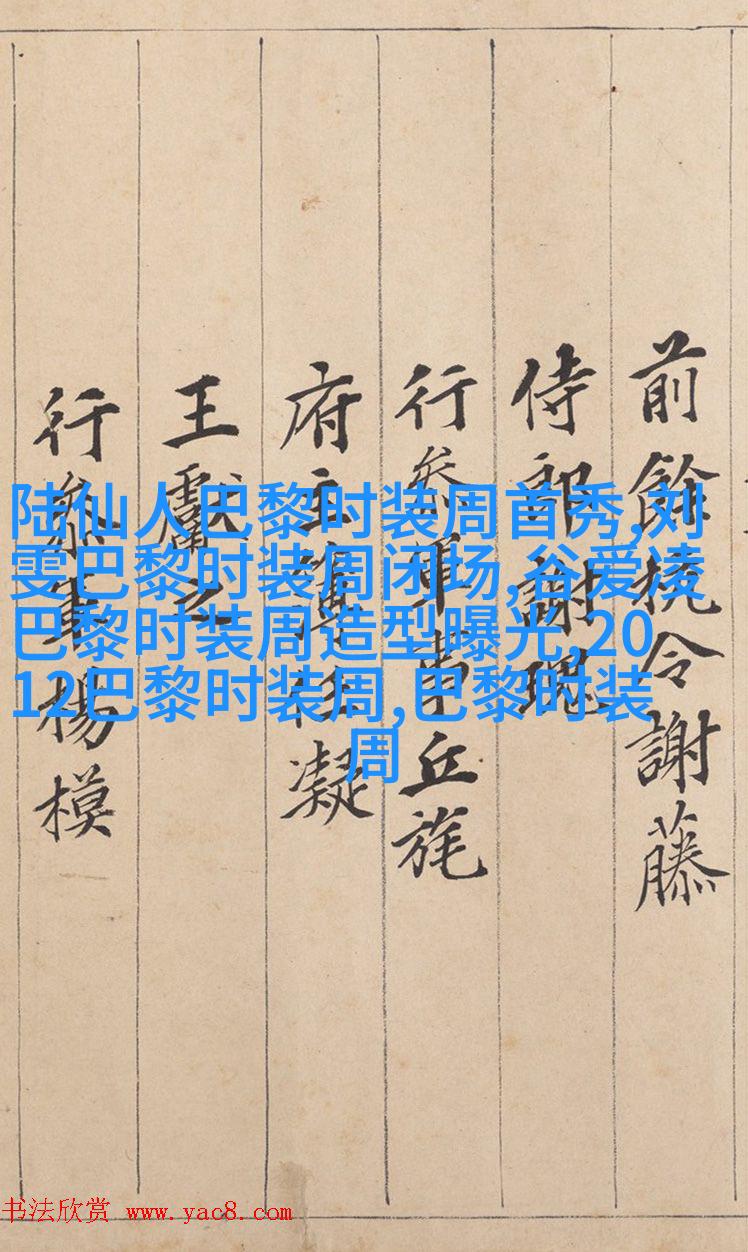 陆仙人巴黎时装周首秀,刘
雯巴黎时装周闭场,谷爱凌
巴黎时装周造型曝光,20
12巴黎时装周,巴黎时装
周
前餘杭令謝藤
侍郎謝瑰
行叅軍事丘旄
府主簿任凝
王獻之
行叅軍楊模
书法欣赏 www.yac8.com